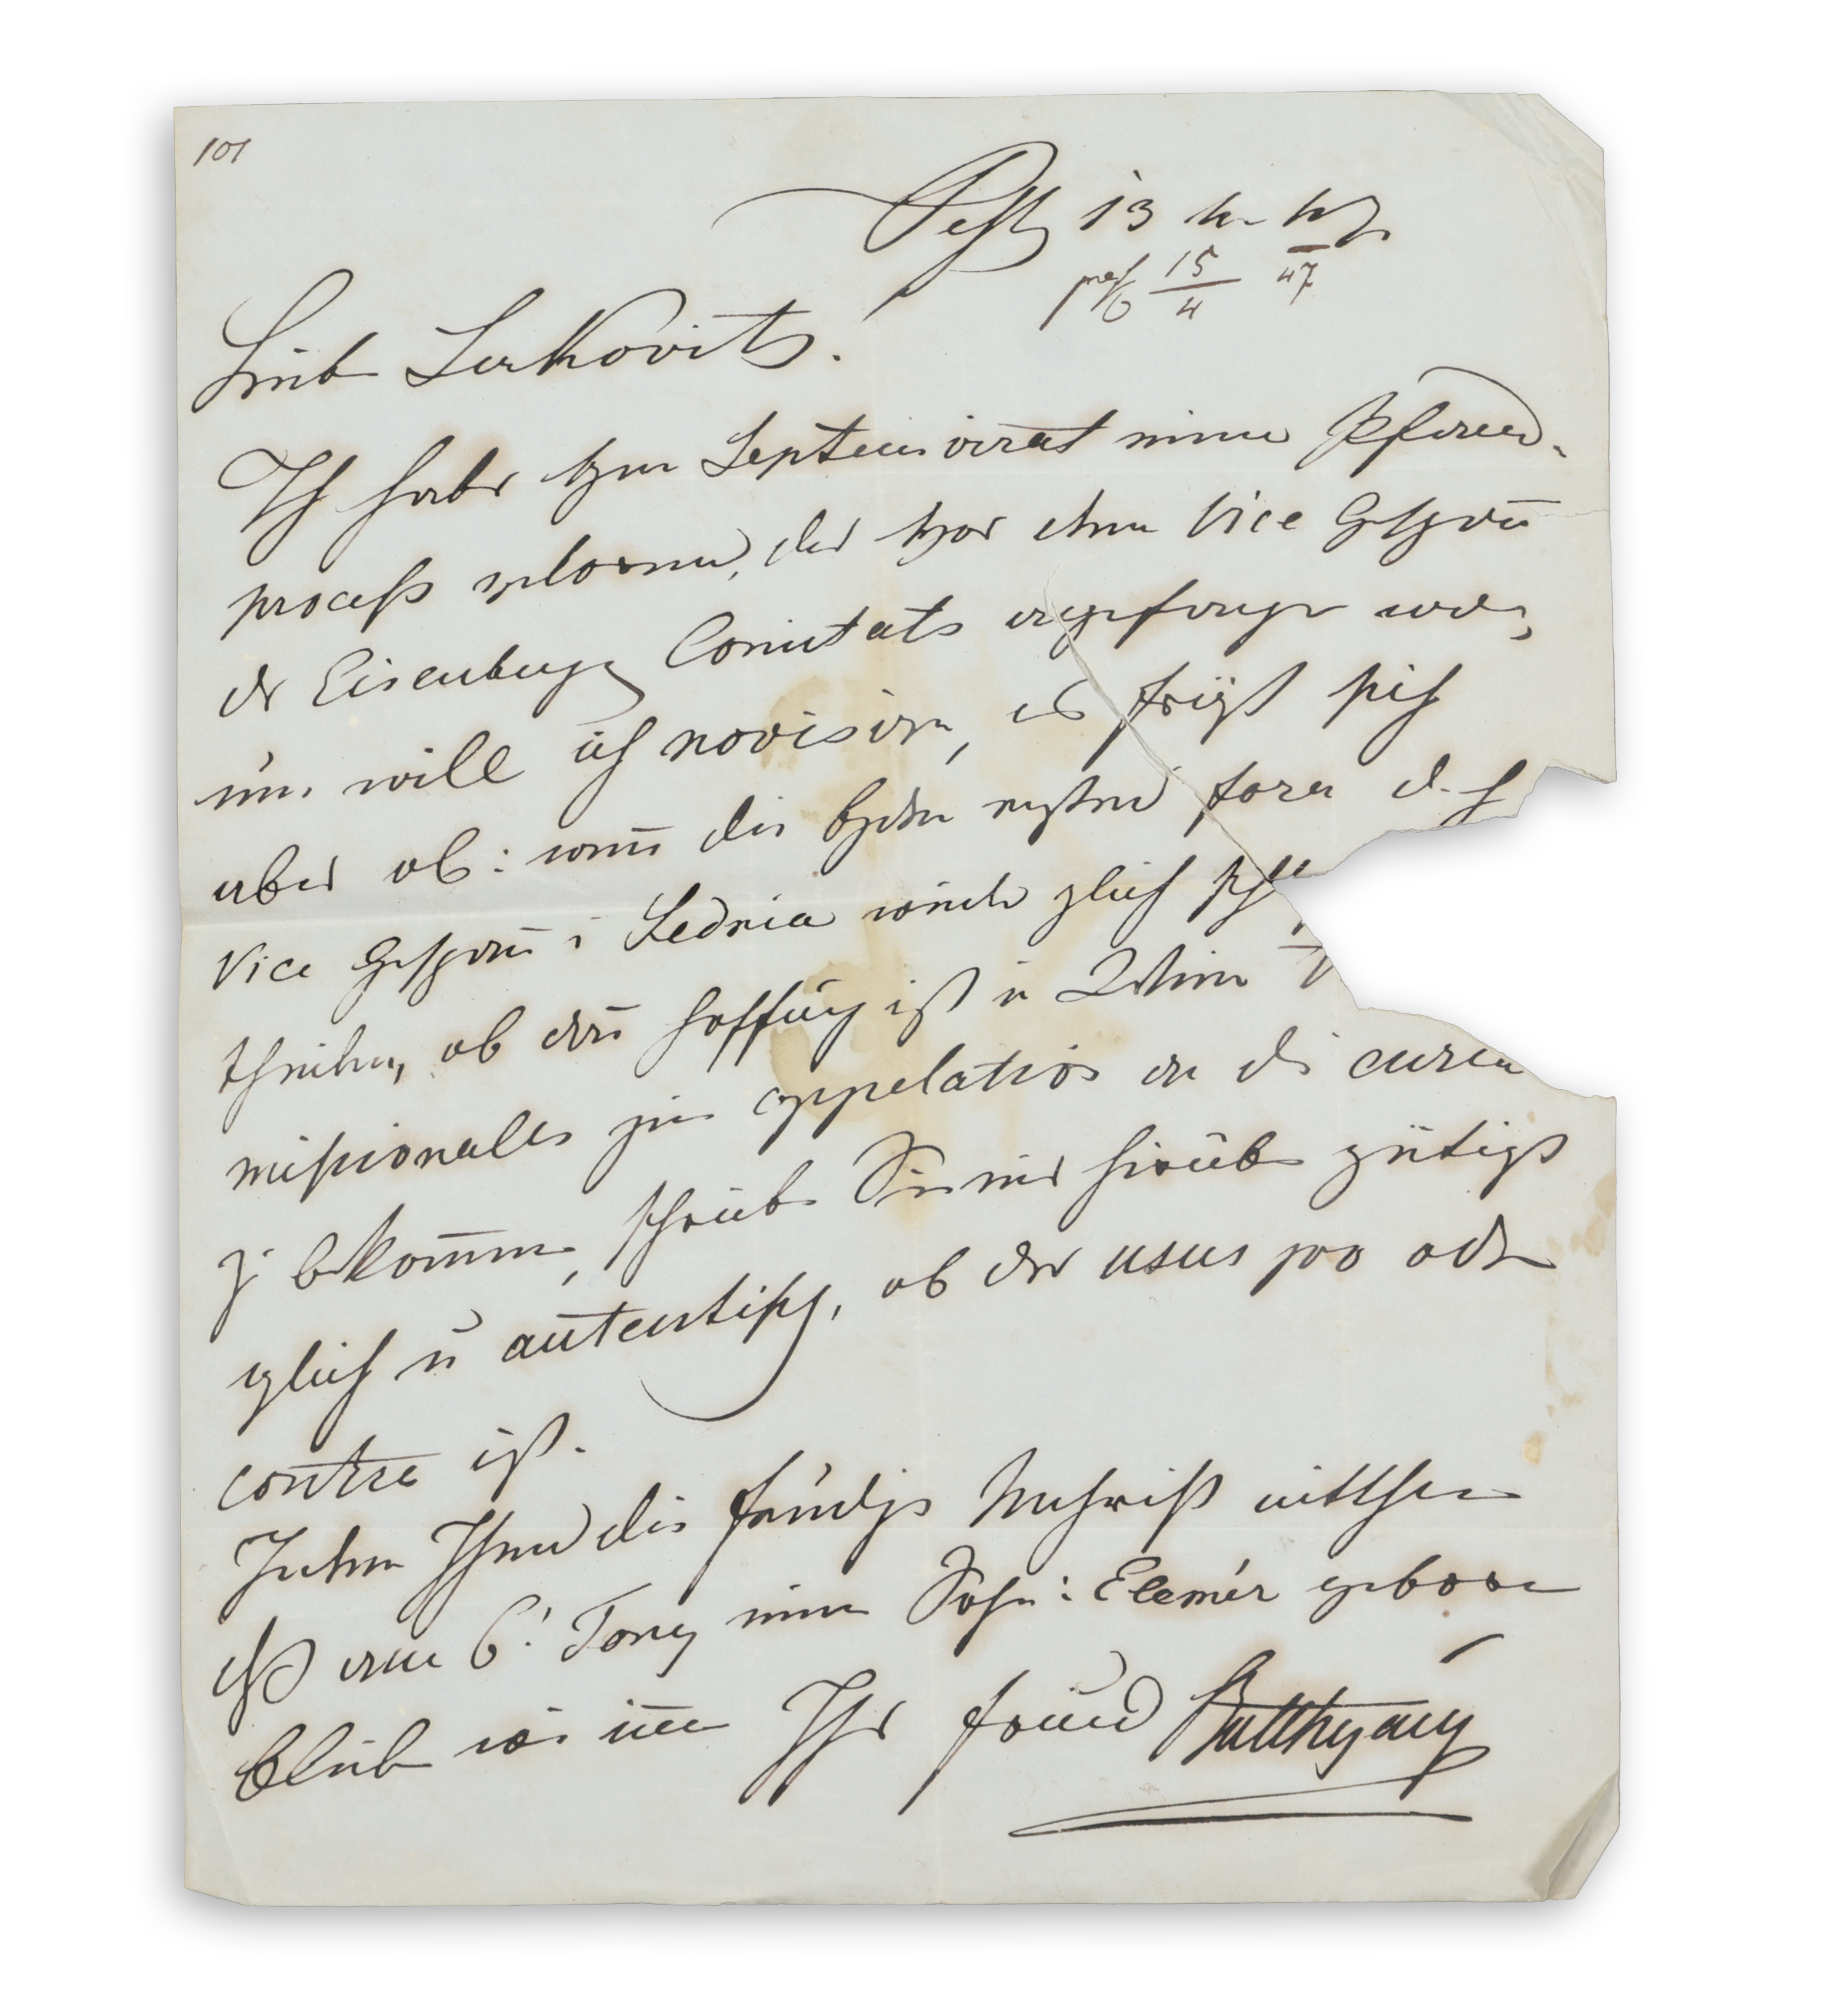 101
Pest 13
15/4 47
Lieber Lerkovits.
Ich habe beym Septemvirat meinen Pferd-
process verloren, der vor dem Vice Gespan
der Eisenburger Comitats angefangen worden,
nun will ich novisiren, es frägt sich
aber ob: wenn die beyden ersten fora d. h
Vice Gespan i Sedria zugleich
theilen, ob dan Hoffnung ist in Wien
missionales zur appelation an die curia
zu bekommen, schreiben Sie mir hierüber gütigst
gleich u autentisch, ob der usus pro oder
contra ist.
Indem Ihnen die freudige Nachricht mittheile
dß am 6t Tony einen Sohn: Elemér geboren
bleibe wie immer Ihr Freund Batthyány